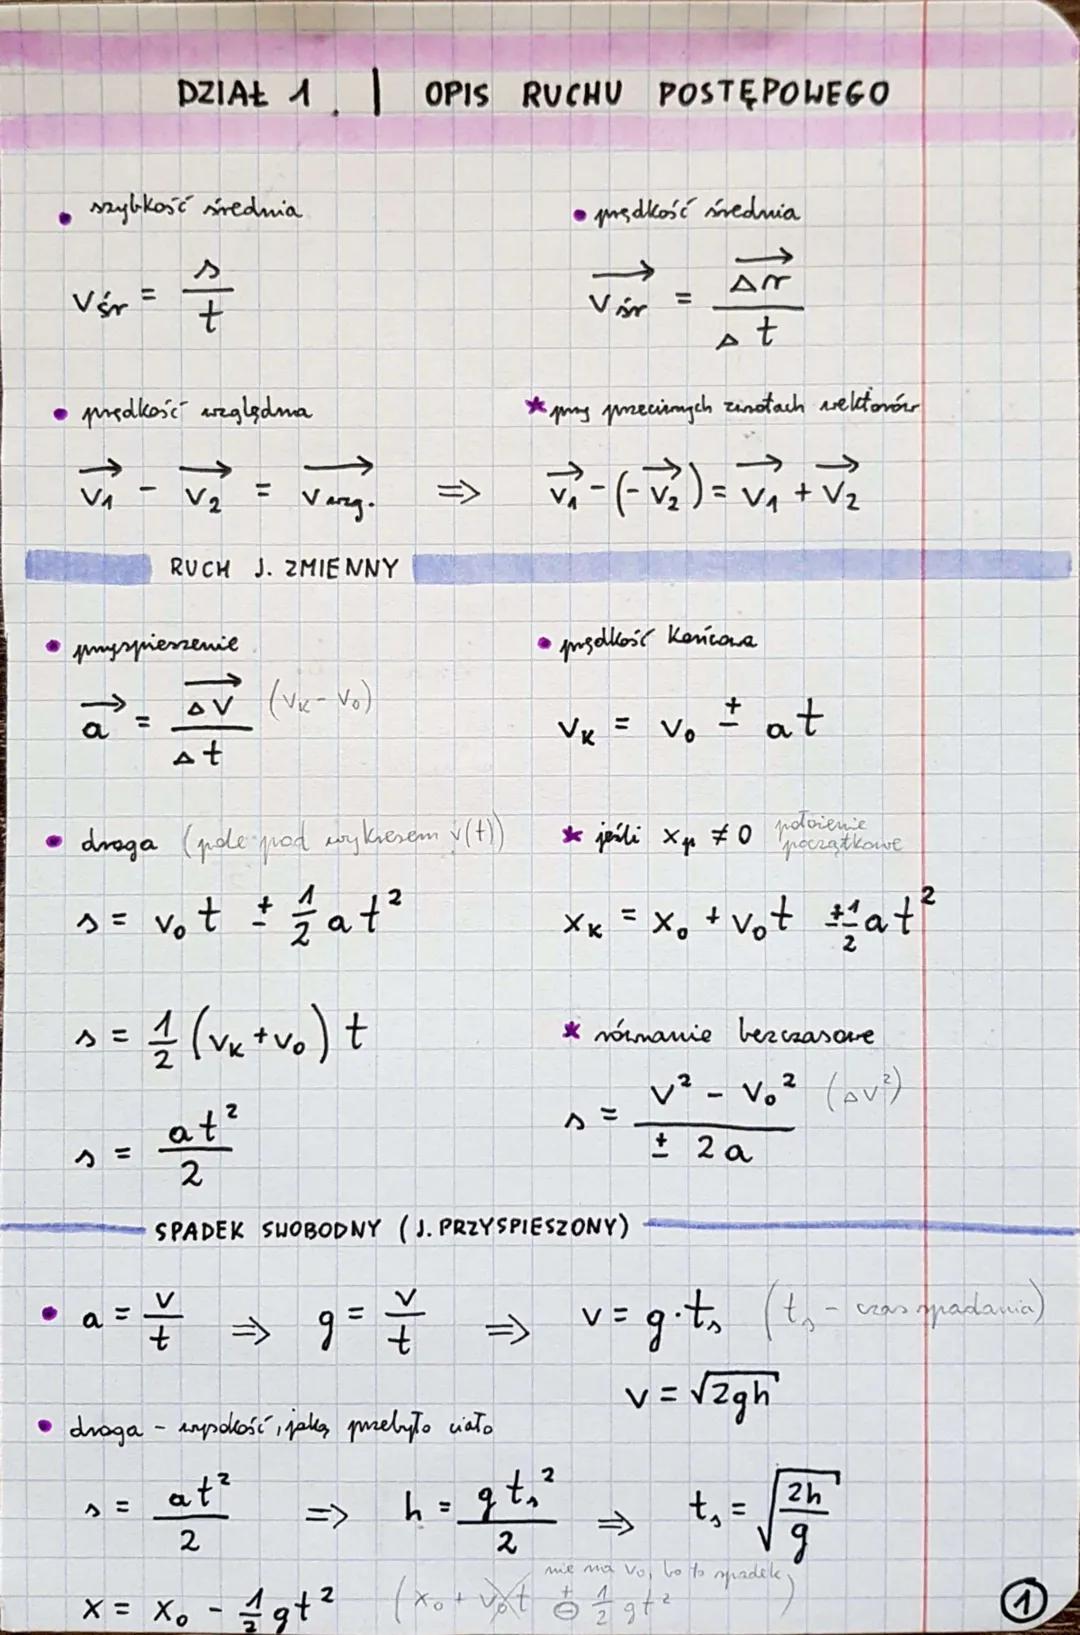 DZIAŁ 1. | OPIS RUCHU POSTĘPOWEGO
• szybkość średnia
Vśr = s/t
• prędkość średnia
→Vśr = →Δr/Δt
• prędkość względna
→V₁ - →V₂ = →Vwzg. ⇒
* przy przeciwnych zwrotach wektorów
→V₁ - (-→V₂) = →V₁ + →V₂
RUCH J. ZMIENNY
• przyspieszenie
→a = →ΔV/Δt (Vk - V₀)
• prędkość końcowa
Vk = V₀ ± at
• droga (pole pod wykresem v(t))
s = V₀t ± 1/2 at²
s = 1/2 (Vk + V₀) t
s = at²/2
* jeśli xp ≠ 0 położenie początkowe
xk = x₀ + V₀t ± 1/2 at²
* równanie bezczasowe
s = (V² - V₀²)/(± 2a) (ΔV²)
SPADEK SWOBODNY (J. PRZYSPIESZONY)
• a = V/t ⇒ g = V/t ⇒ V = g·ts (ts - czas spadania)
V = √2gh
• droga - wysokość, jaką przebyło ciało
s = at²/2 ⇒ h = gts²/2 ⇒ ts = √(2h/g)
nie ma V₀, bo to spadek
x = x₀ - 1/2 gt² (x₀ + V₀t ± 1/2 gt²)
1